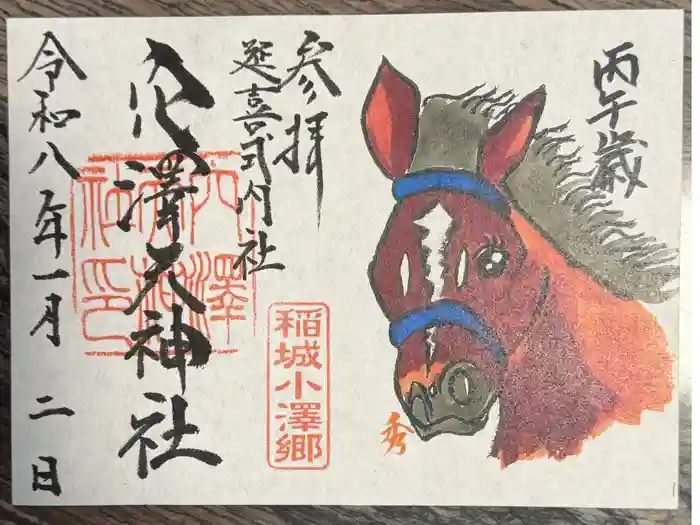 丙午歳
秀
参拝
延喜式内社
稲城小澤郷
穴澤天神社
令和八年一月二日